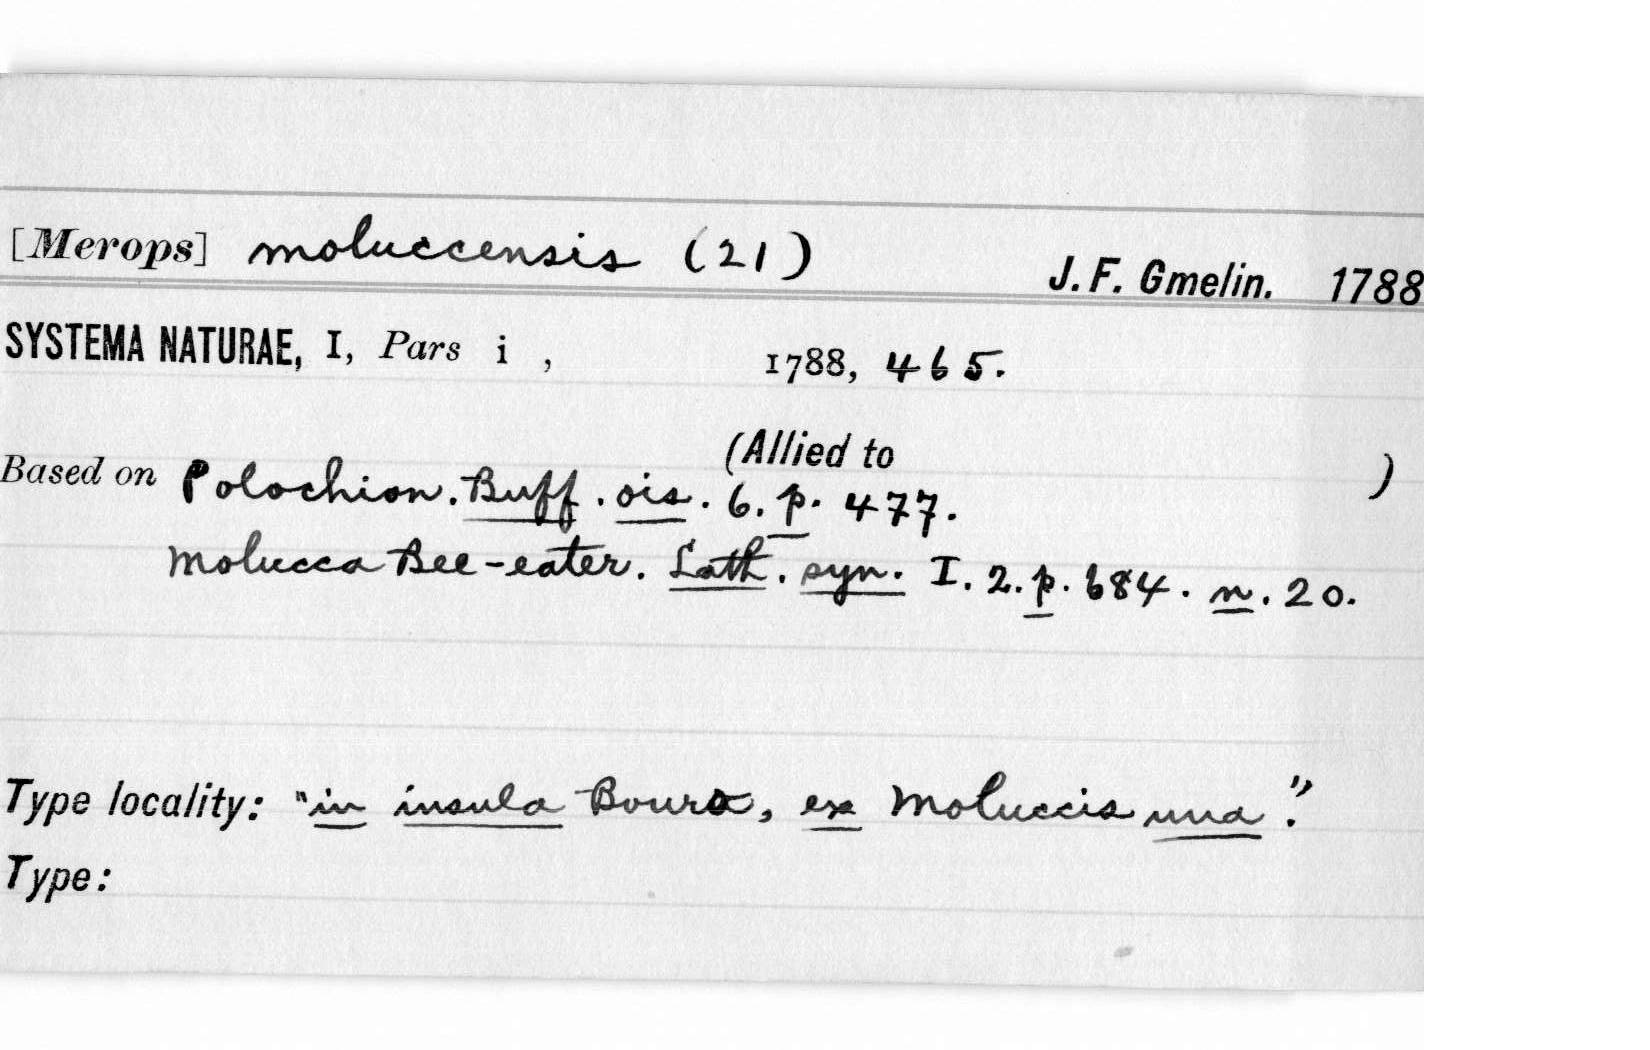 [Merops] moluccensis (21)
J. F. Gmelin. 1788
SYSTEMA NATURAE, I, Pars i , 1788, 465.
(Allied to )
Based on Polochion. Buff. ois. 6. p. 477.
Molucca Bee-eater. Lath. syn. I. 2. p. 684. n. 20.
Type locality: "in insula Bouro, ex Moluccis una".
Type: